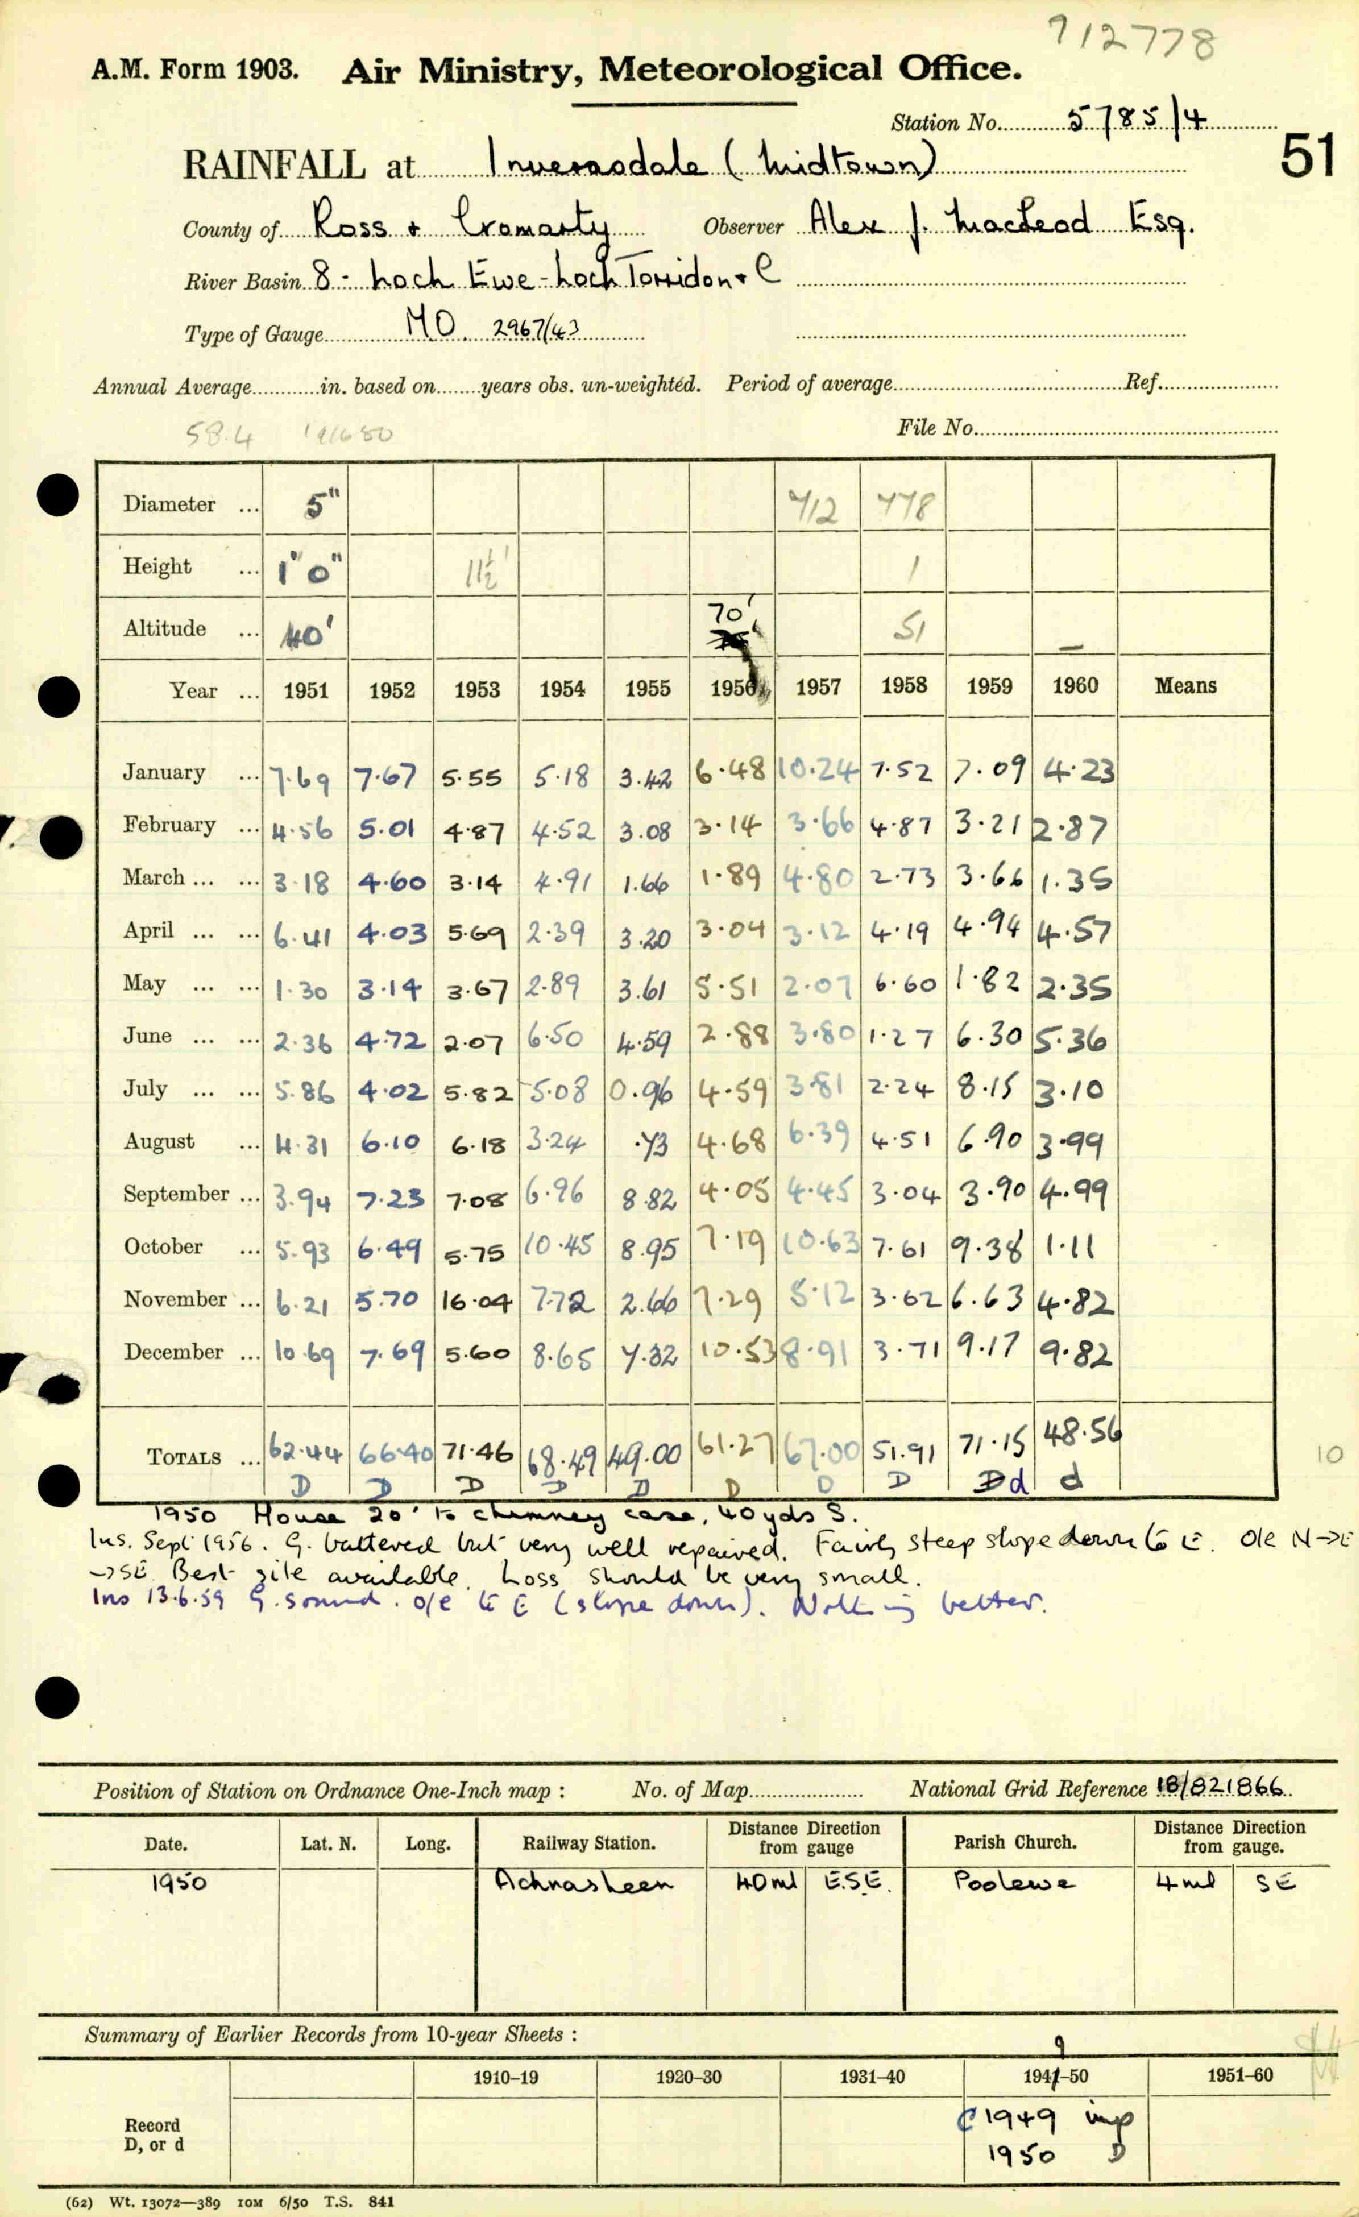 712778
A.M. Form 1903. Air Ministry, Meteorological Office.
Station No. 5785/4
RAINFALL at Inverasdale (Midtown) 51
County of Ross + Cromarty Observer Alex J. MacLeod Esq.
River Basin 8 - Loch Ewe - Loch Torridon + C
Type of Gauge MO. 2967/43
Annual Average in. based on years obs. un-weighted. Period of average Ref.
58.4 1916 50
File No.
Diameter ... 5" 712 778
Height ... 1' 0" 11½' 1
Altitude ... 40' 70' 51 —
Year ... 1951 1952 1953 1954 1955 1956 1957 1958 1959 1960 Means
January ... 7.69 7.67 5.55 5.18 3.42 6.48 10.24 7.52 7.09 4.23
February ... 4.56 5.01 4.87 4.52 3.08 3.14 3.66 4.87 3.21 2.87
March ... ... 3.18 4.60 3.14 4.91 1.66 1.89 4.80 2.73 3.66 1.35
April ... ... 6.41 4.03 5.69 2.39 3.20 3.04 3.12 4.19 4.94 4.57
May ... ... 1.30 3.14 3.67 2.89 3.61 5.51 2.07 6.60 1.82 2.35
June ... ... 2.36 4.72 2.07 6.50 4.59 2.88 3.80 1.27 6.30 5.36
July ... ... 5.86 4.02 5.82 5.08 0.96 4.59 3.81 2.24 8.15 3.10
August ... 4.31 6.10 6.18 3.24 .73 4.68 6.39 4.51 6.90 3.99
September ... 3.94 7.23 7.08 6.96 8.82 4.05 4.45 3.04 3.90 4.99
October ... 5.93 6.49 5.75 10.45 8.95 7.19 10.63 7.61 9.38 1.11
November ... 6.21 5.70 16.04 7.72 2.66 7.29 5.12 3.62 6.63 4.82
December ... 10.69 7.69 5.60 8.65 7.32 10.53 8.91 3.71 9.17 9.82
TOTALS ... 62.44 66.40 71.46 68.49 49.00 61.27 67.00 51.91 71.15 48.56 10
D D D D D D D D D d d
1950 House 20' to chimney case, 40 yds S.
Ins. Sept 1956. G. battered but very well repaired. Fairly steep slope down to E. O/e N→E
→SE. Best site available. Loss should be very small.
Ins 13.6.59 G. sound. o/e to E (slope down). Nothing better.
Position of Station on Ordnance One-Inch map : No. of Map National Grid Reference 18/821866
Date. Lat. N. Long. Railway Station. Distance Direction from gauge Parish Church. Distance Direction from gauge.
1950 Achnasheen 40 ml E.S.E. Poolewe 4 ml SE
Summary of Earlier Records from 10-year Sheets :
9
1910–19 1920–30 1931–40 1941–50 1951–60
Record
D, or d
C 1949 imp
1950 D
(62) Wt. 13072—389 10M 6/50 T.S. 841